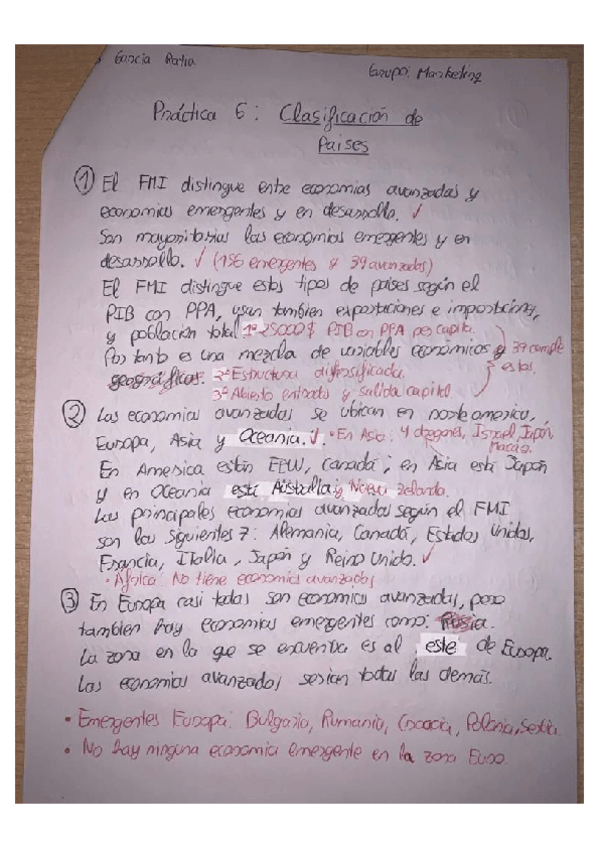 García
Grupo: Marketing
Práctica 6: Clasificación de
Países
① El FMI distingue entre economías avanzadas y
economías emergentes y en desarrollo. ✓
Son mayoritarias las economías emergentes y en
desarrollo. ✓ (156 emergentes y 39 avanzados)
El FMI distingue estos tipos de países según el
PIB con PPA, usan tambien exportaciones e importaciones,
y población total 1º 25000$ PIB con PPA per capita.
Por tanto es una mezcla de variables económicas y 39 cumple
geográficas. 2º Estructura diversificada. estos.
3º Abierto entrada y salida capital
② Las economías avanzadas se ubican en norteamerica,
Europa, Asia y Oceanía. ✓ • En Asia: 4 dragones, Israel, Japón,
Macao.
En America están EEUU, Canadá, en Asia está Japón
y en Oceanía está Australia y Nueva Zelanda.
Las principales economías avanzadas según el FMI
son las siguientes 7: Alemania, Canadá, Estados Unidos,
Francia, Italia, Japón y Reino Unido. ✓
• África: No tiene economías avanzadas
③ En Europa casi todas son economías avanzadas, pero
tambien hay economías emergentes como: Rusia.
La zona en la que se encuentra es al este de Europa.
Las economías avanzadas serían todas las demás.
• Emergentes Europa: Bulgaria, Rumanía, Croacia, Polonia, Serbia
• No hay ninguna economía emergente en la zona Euro.